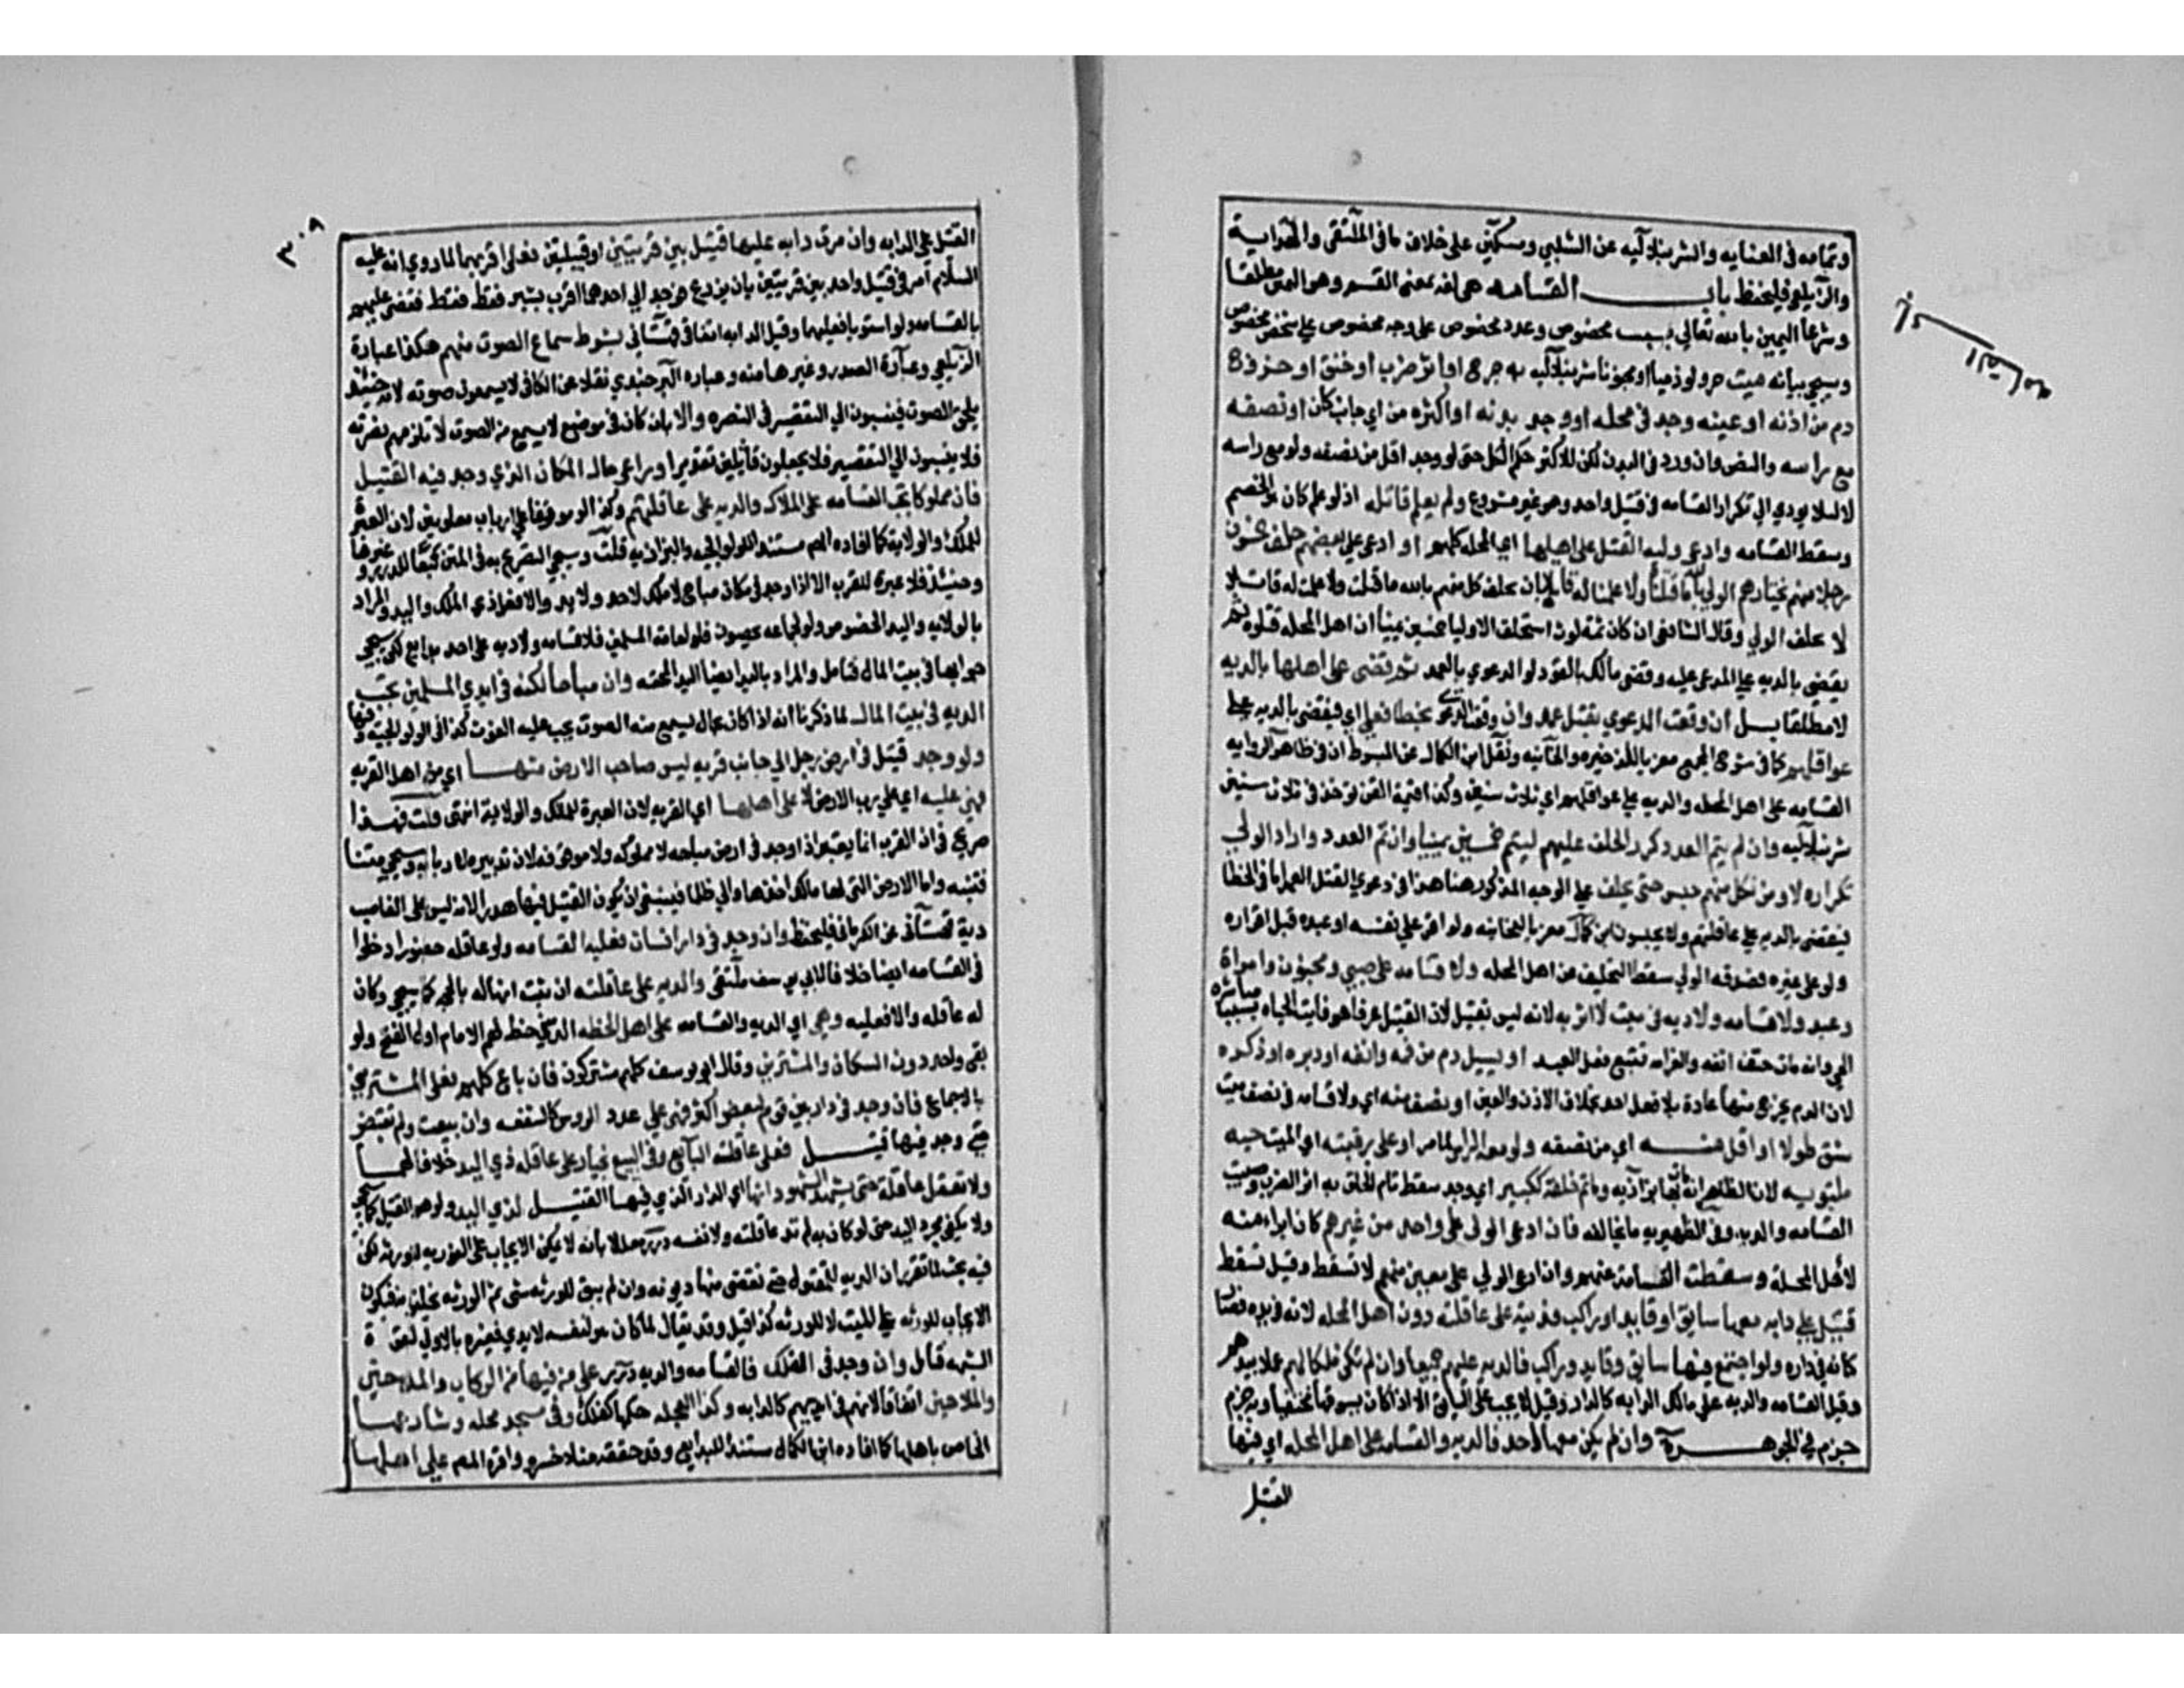 وتمامه في العنايه والشرنبلاليه عن الشلبي ومسكين على خلاف ما في الملتقى والهداية
والزيلعي فليحفظ باب القسامه هي لغه بمعنى القسم وهو اليمين مطلقا
وشرعا اليمين بالله تعالى بسبب مخصوص وعدد مخصوص على وجه مخصوص على شخص مخصوص
وسيجي بيانه ميت حر ولو ذميا او مجنونا شرنبلاليه به جرح او اثر ضرب او خنق او خروج
دم من اذنه او عينه وجد في محله او وجد بدنه او اكثره من اي جانب كان او نصفه
مع راسه والنص وان ورد في البدن لكن للاكثر حكم الكل حتى لو وجد اقل من نصفه ولو مع راسه
لا لئلا يودي الى تكرار القسامه في قتيل واحد وهو غير مشروع ولم يعلم قاتله اذ لو علم كان هو الخصم
وسقط القسامه وادعى وليه القتل على اهلها اي المحله كلهم او ادعى على بعضهم حلف خمسون
رجلا منهم يختارهم الولي بالله ما قتلناه ولا علمنا له قاتلا بان يحلف كل منهم بالله ما قتلت ولا علمت له قاتلا
لا يحلف الولي وقال الشافعي ان كان ثمة لوث استحلف الاوليا خمسين يمينا ان اهل المحله قتلوه ثم
يقضي بالديه على المدعى عليه وقضى مالك بالقود لو الدعوى بالعمد ثم قضي على اهلها بالديه
لا مطلقا بل ان وقعت الدعوى بقتل عمد وان وقعت الدعوى بخطا فعلى اي فيقضى بالديه على
عواقلهم كما في شرح المجمع معزيا للذخيره والخانيه ونقل ابن الكمال عن المبسوط ان في ظاهر الروايه
القسامه على اهل المحله والديه على عواقلهم اي ثلاث سنين وكذا قيمة القن توخذ في ثلاث سنين
شرنبلاليه وان لم يتم العدد كرر الحلف عليهم ليتم خمسين يمينا وان تم العدد واراد الولي
تكراره لا ومن نكل منهم حبس حتى يحلف على الوجه المذكور هنا هذا في دعوى القتل العمد اما في الخطا
فيقضى بالديه على عاقلتهم ولا يحبسون ابن كمال معزيا للخانيه ولو اقر على نفسه او عبده قبل اقراره
ولو على غيره فصدقه الولي سقط التحليف عن اهل المحله ولا قسامه على صبي ومجنون وامراة
وعبد ولا قسامه ولا ديه في ميت لا اثر به لانه ليس بقتيل لان القتيل عرفا هو فايت الحياه بسبب مباشره
الحي وانه مات حتف انفه والغرامه تتبع فعل العبد او يسيل دم من فمه وانفه او دبره او ذكره
لان الدم يخرج منها عادة بلا فعل احد بخلاف الاذن والعين او نصف منه اي ولا قسامه في نصف ميت
شق طولا او اقل منه اي من نصفه ولو معه الراس لما مر او على رقبته اي الميت حيه
ملتويه لان الظاهر انه مات بها بزازيه وما تم خلقه ككبير اي وجد سقط تام الخلق به اثر الضرب وجبت
القسامه والديه وفي الظهيريه ما يخالفه فان ادعى الولي على واحد من غيرهم كان ابراء منه
لاهل المحلة وسقطت القسامة عنهم وان ادعى الولي على معين منهم لا تسقط وقيل تسقط
قتيل على دابه معها سايق او قايد او راكب فديته على عاقلته دون اهل المحله لانه في يده فصار
كانه في داره ولو اجتمع فيها سايق وقايد وراكب فالديه عليهم جميعا وان لم تكن ملكا لهم عملا بيدهم
وقيل القسامه والديه على مالك الدابه كالدار وقيل لا يجب على السايق الا اذا كان يسوقها مختفيا وبه جزم
جزم في الجوهرة وان لم يكن معها احد فالديه والقسامه على اهل المحله اي فيها
القتيل
٣٠٩
القتيل على الدابه وان مرت دابه عليها قتيل بين قريتين او قبيلتين فعلى اقربهما لما روي انه عليه
السلام امر في قتيل واحد بين قريتين بان يذرع فوجد الى احدهما اقرب بشبر فقط فقضى عليهم
بالقسامه ولو استويا فعليهما وقيل الدابه اتفاقي قهستاني بشرط سماع الصوت منهم هكذا عبارة
الزيلعي وعبارة الصدر وغيرها منه وعباره البرجندي نقلا عن الكافي لا يسمعون صوته لانه حينئذ
يلحق الصوت فينسبون الى التقصير في النصره والا بان كان في موضع لا يسمع منه الصوت لا تلزمهم نصرته
فلا ينسبون الى التقصير فلا يجعلون قاتلين تقديرا ويراعى حال المكان الذي وجد فيه القتيل
فان مملوكا تجب القسامه على الملاك والديه على عاقلتهم وكذا لو موقوفا على ارباب معلومين لان العبرة
للملك والولاية كما افاده المص مستندا للولوالجيه والبزازيه قلت وسيجي التصريح به في المتن تبعا للدرر وغيرها
وحينئذ فلا عبره للقرب الا اذا وجد في مكان مباح لا ملك لاحد ولا يد والا فعلى ذي الملك واليد والمراد
بالولايه واليد الخصوص ولو لجماعه يحصون فلو لعامة المسلمين فلا قسامه ولا ديه على احد بدايع لكن سيجي
جوابها في بيت المال فتامل والمراد باليد ايضا اليد المحقه وان مباحا لكنه في ايدي المسلمين تجب
الديه في بيت المال لما ذكرنا انه اذا كان بحال يسمع منه الصوت يجب عليه الغوث كذا في الولوالجيه وفيها
ولو وجد قتيل في ارض رجل الى جانب قريه ليس صاحب الارض منها اي من اهل القريه
فهي عليه اي على رب الارض لا على اهلها اي القريه لان العبرة للملك والولاية انتهى قلت فهذا
صريح في ان القرب انما يعتبر اذا وجد في ارض مباحه لا مملوكه ولا موقوفه لان تدبيره لاربابه وسيجي متنا
فتنبه واما الارض التي لها مالك اخذها والي ظلما فينبغي ان يكون القتيل فيها هدرا لانه ليس على الغاصب
دية قهستاني عن الكرماني فليحفظ وان وجد في دار انسان فعليه القسامه ولو عاقله حضورا دخلوا
في القسامه ايضا خلافا لابي يوسف ملتقى والديه على عاقلته ان ثبت انها له بالحجه كما سيجي وكان
له عاقله والا فعليه وهي اي الديه والقسامه على اهل الخطه الذين خط لهم الامام اول الفتح ولو
بقي واحد دون السكان والمشترين وقال ابو يوسف كلهم مشتركون فان باع كلهم فعلى المشترين
بالاجماع فان وجد في دار بين قوم لبعض اكثر فهي على عدد الروس كالشفعه وان بيعت ولم تقبض
حتى وجد فيها قتيل فعلى عاقلة البايع وفي البيع بخيار على عاقله ذي اليد خلافا لهما
ولا تعقل عاقلة حتى يشهد الشهود انها اي الدار الذي فيها القتيل لذي اليد ولو هو القتيل كما سيجي
ولا يكفي مجرد اليد حتى لو كان به لم تد عاقلته ولا نفسه درر معللا بانه لا يمكن الايجاب على الورثه للورثه لكن
فيه بحث لما تقرر ان الديه للمقتول حتى تقضى منها ديونه وان لم يبق للورثه شي ثم الورثه يخلفونه فيكون
الايجاب للورثه على الميت لا للورثه كذا قيل وقد يقال لما كان هو لنفسه لا يدي فغيره بالاولى لقوة
الشبهه تامل وان وجد في الفلك فالقسامه والديه درر على من فيها من الركاب والملاحين
والملاحين اتفاقا لانهم في ايديهم كالدابه وكذا العجله حكمها كفلك وفي مسجد محله وشارعها
الخاص باهلها كما افاده ابن الكمال مستندا للبدايع وقد حققه منلا خسرو واقره المص على اهلها